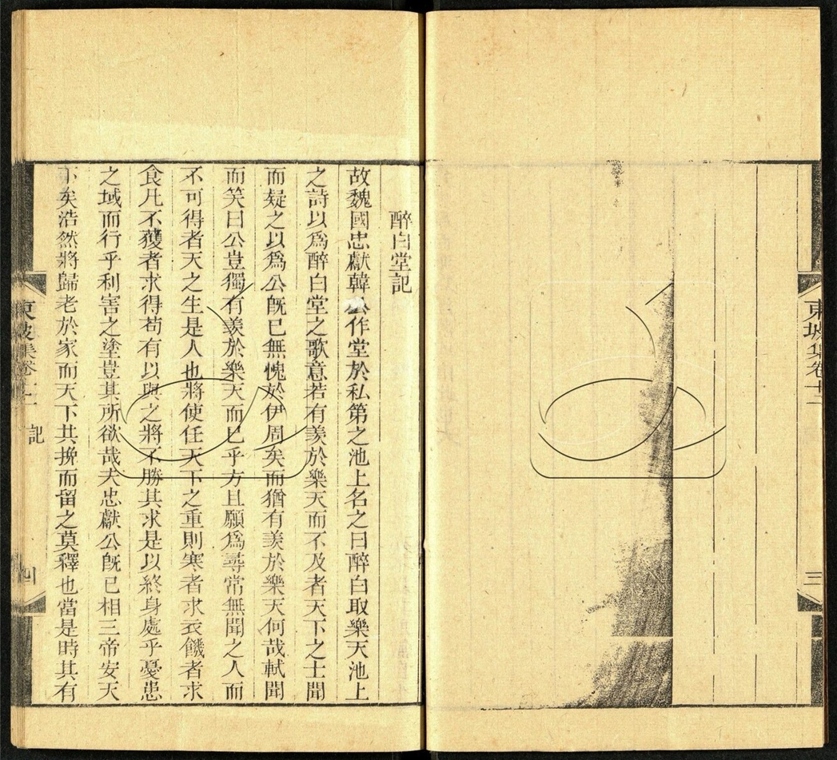 東坡集卷十二
三
醉白堂記
故魏國忠獻韓公作堂於私第之池上名之曰醉白取樂天池上
之詩以爲醉白堂之歌意若有羨於樂天而不及者天下之士聞
而疑之以爲公旣已無愧於伊周矣而猶有羨於樂天何哉軾聞
而笑曰公豈獨有羨於樂天而已乎方且願爲尋常無聞之人而
不可得者天之生是人也將使任天下之重則寒者求衣饑者求
食凡不獲者求得苟有以與之將不勝其求是以終身處乎憂患
之域而行乎利害之塗豈其所欲哉夫忠獻公旣已相三帝安天
下矣浩然將歸老於家而天下共挽而留之莫釋也當是時其有
東坡集卷十二 記